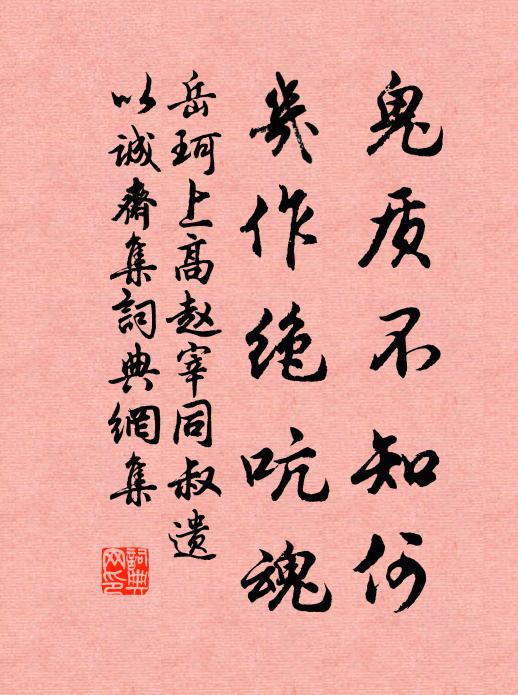 鬼质不知何
几作绝吭魂
岳珂上高赵宰同叔遗
以诚齋集詞典網集
詞典网印